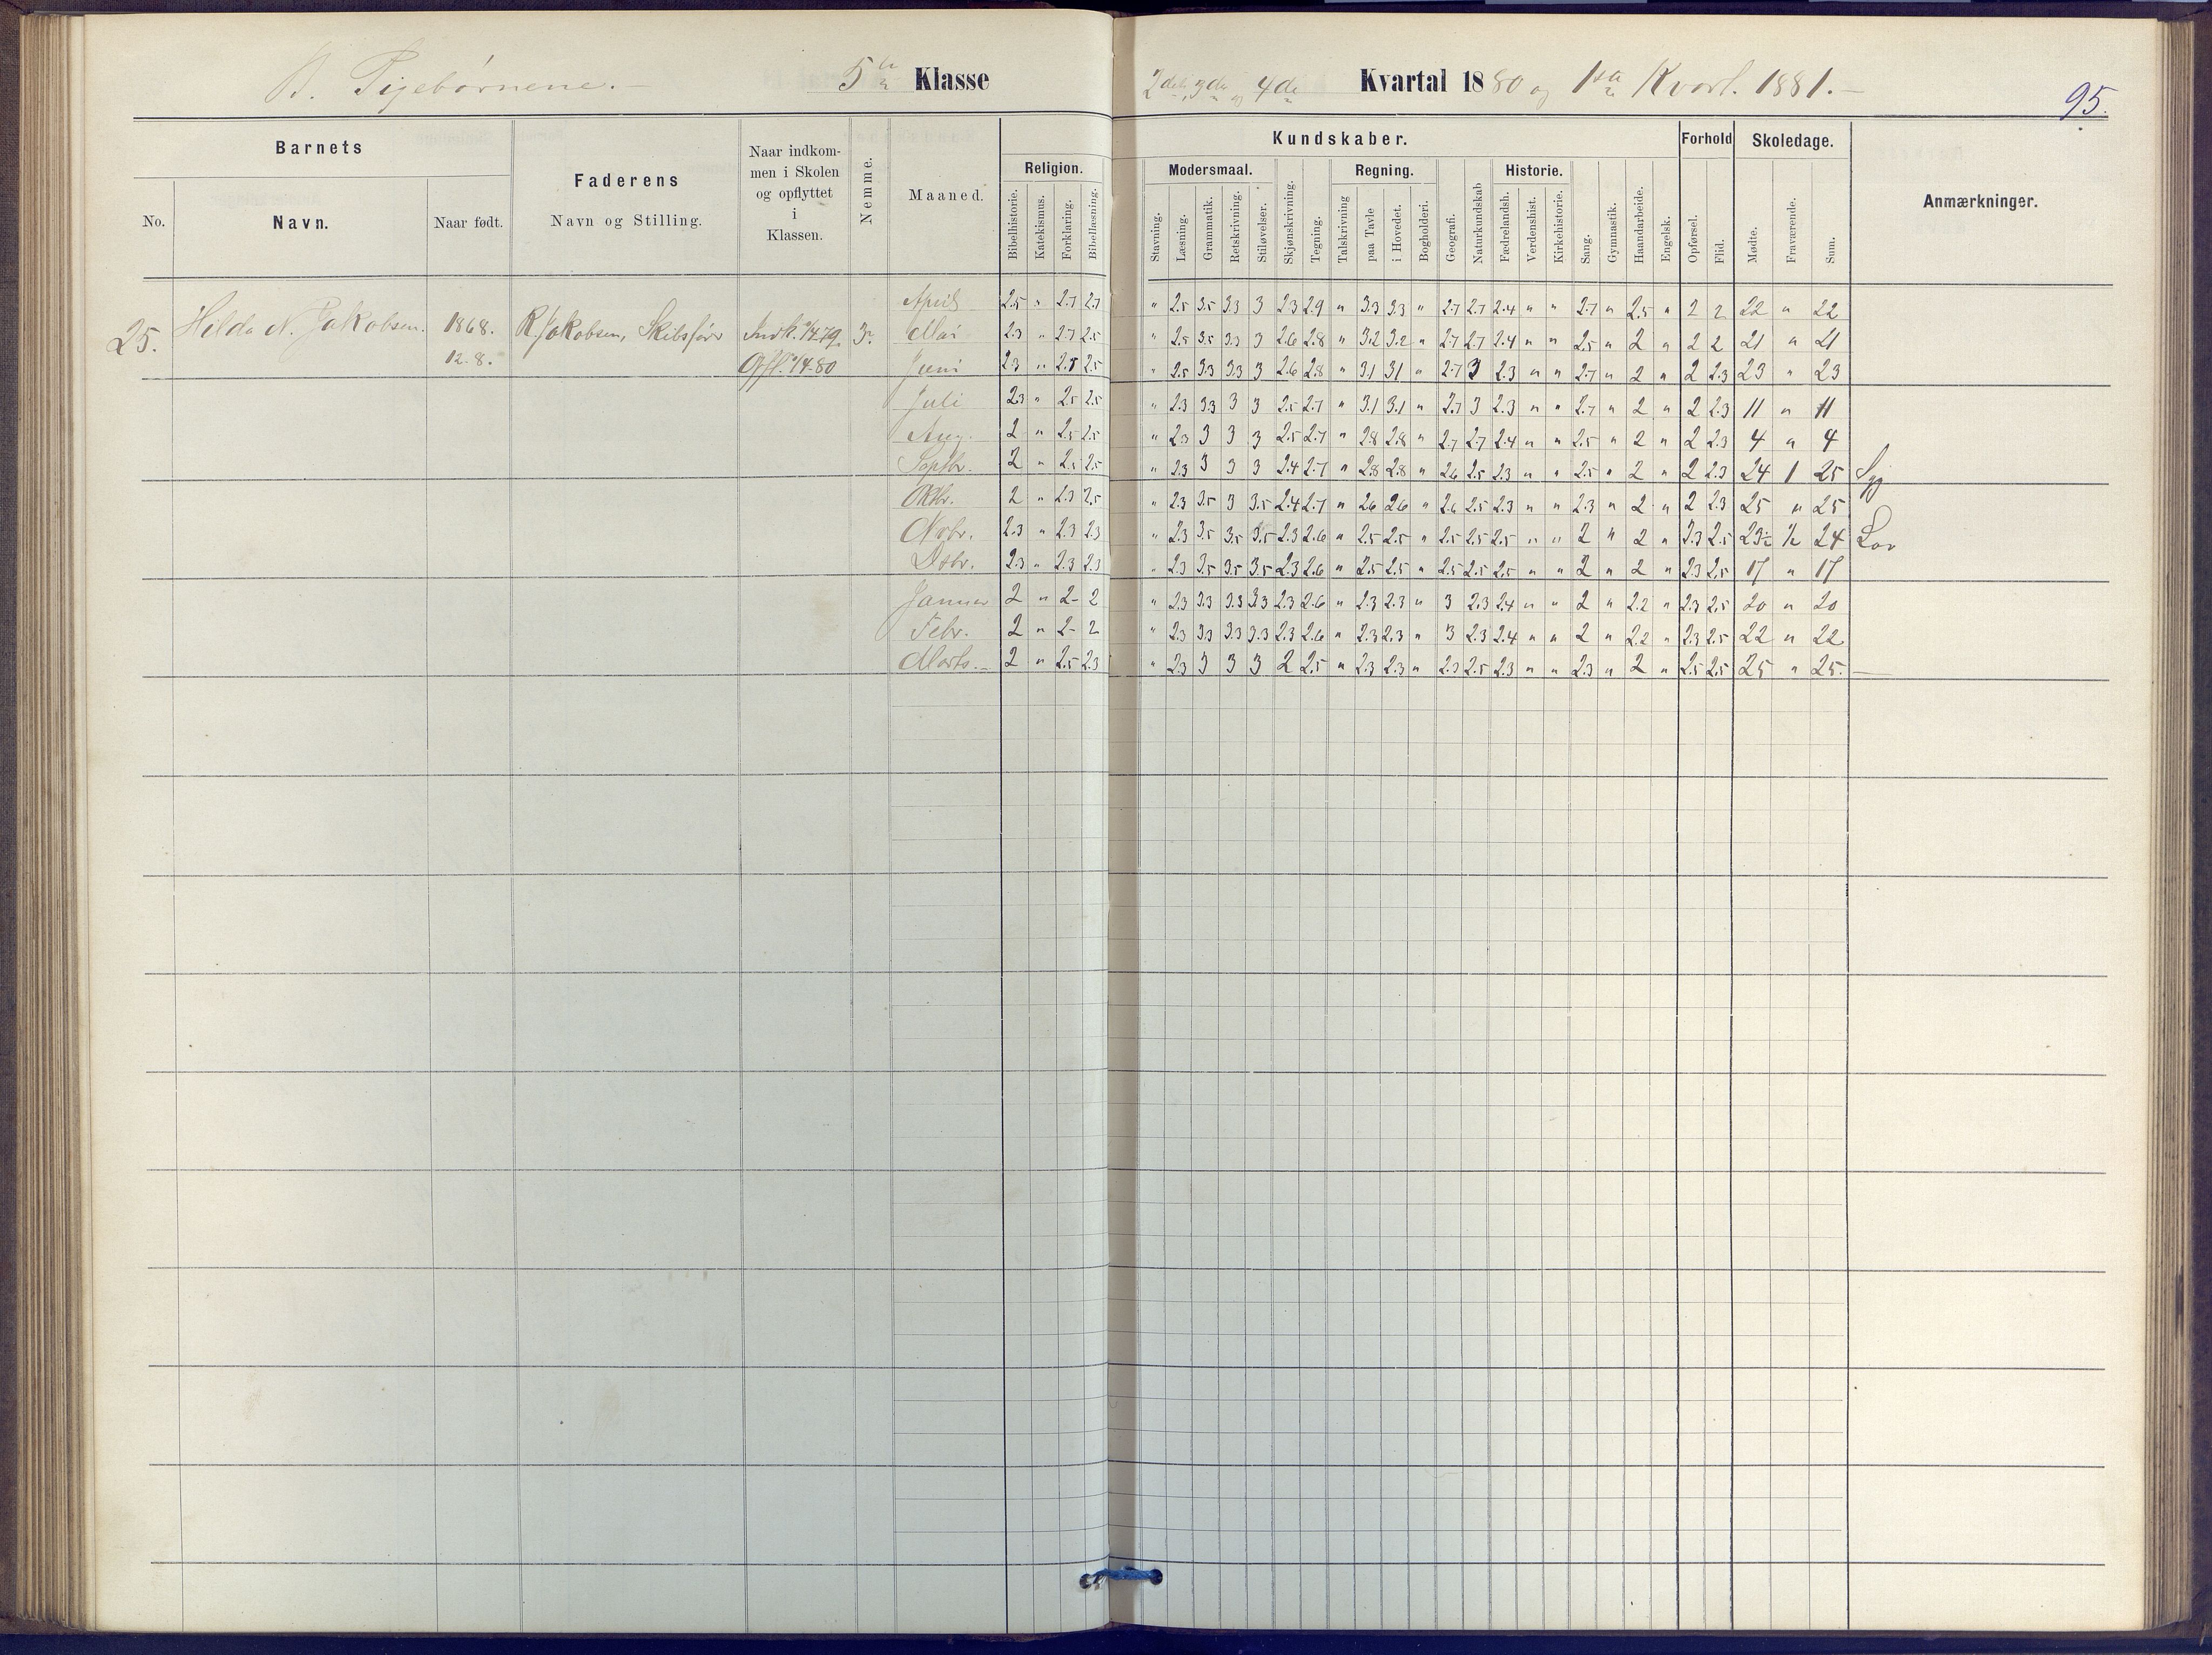 B. Pigebørnene. —
5te Klasse
2det, 3die og 4de Kvartal 1880 og 1ste Kvart. 1881. —
95.
Barnets
No.
Navn.
Naar født.
Faderens
Navn og Stilling.
Naar indkom-
men i Skolen
og opflyttet
i
Klassen.
Nemme.
Maaned.
Kundskaber.
Religion.
Bibelhistorie.
Katekismus.
Forklaring.
Bibellæsning.
Modersmaal.
Stavning.
Læsning.
Grammatik.
Retskrivning.
Stiløvelser.
Skjønskrivning.
Tegning.
Regning.
Talskrivning
paa Tavle
i Hovedet.
Bogholderi.
Geografi.
Naturkundskab
Historie.
Fædrelandsh.
Verdenshist.
Kirkehistorie.
Sang.
Gymnastik.
Haandarbeide.
Engelsk.
Forhold
Opførsel.
Flid.
Skoledage.
Mødte.
Fraværende.
Sum.
Anmærkninger.
25.
Hilda N. Jakobsen.
1868.
12-8.
R. Jakobsen, Skibsfører
Indk. 1/4 79.
Opfl. 1/4-80
3.
April 2.5 " 2.7 2.7 " 2.5 3.5 3.3 3 2.3 2.9 " 3.3 3.3 " 2.7 2.7 2.4 " " 2.7 " 2.5 " 2 2 22 " 22
Mai 2.3 " 2.7 2.5 " 2.5 3.5 3.3 3 2.6 2.8 " 3.2 3.2 " 2.7 2.7 2.4 " " 2.5 " 2 " 2 2 21 " 21
Juni 2.3 " 2.5 2.5 " 2.5 3.3 3.3 3 2.6 2.8 " 3.1 3.1 " 2.7 3 2.3 " " 2.7 " 2 " 2 2.3 23 " 23
Juli 2.3 " 2.5 2.5 " 2.3 3.3 3 3 2.5 2.7 " 3.1 3.1 " 2.7 3 2.3 " " 2.7 " 2 " 2 2.3 11 " 11
Aug. 2 " 2.5 2.5 " 2.3 3 3 3 2.5 2.7 " 2.8 2.8 " 2.7 2.7 2.4 " " 2.5 " 2 " 2 2.3 4 " 4
Septbr. 2 " 2.5 2.5 " 2.3 3 3 3 2.4 2.7 " 2.8 2.8 " 2.6 2.5 2.3 " " 2.5 " 2 " 2 2.3 24 1 25 Syg
Oktbr. 2 " 2.3 2.5 " 2.3 3.5 3 3.5 2.4 2.7 " 2.6 2.6 " 2.6 2.5 2.3 " " 2.3 " 2 " 2 2.3 25 " 25
Novbr. 2.3 " 2.3 2.3 " 2.3 3.5 3.5 3.5 2.3 2.6 " 2.5 2.5 " 2.5 2.5 2.5 " " 2 " 2 " 2.3 2.5 23½ ½ 24 Lov
Dsbr. 2.3 " 2.3 2.3 " 2.3 3.5 3.5 3.5 2.3 2.6 " 2.5 2.5 " 2.5 2.5 2.5 " " 2 " 2 " 2.3 2.5 17 " 17
Januar 2 " 2- 2 " 2.3 3.3 3.3 3.3 2.3 2.6 " 2.3 2.3 " 3 2.3 2.4 " " 2 " 2.2 " 2.3 2.5 20 " 20
Febr. 2 " 2- 2 " 2.3 3.3 3.3 3.3 2.3 2.6 " 2.3 2.3 " 3 2.3 2.4 " " 2 " 2.2 " 2.3 2.5 22 " 22
Marts.- 2 " 2.5 2.3 " 2.3 3 3 3 2 2.5 " 2.3 2.3 " 2.3 2.5 2.3 " " 2.3 " 2 " 2.5 2.5 25 " 25. —